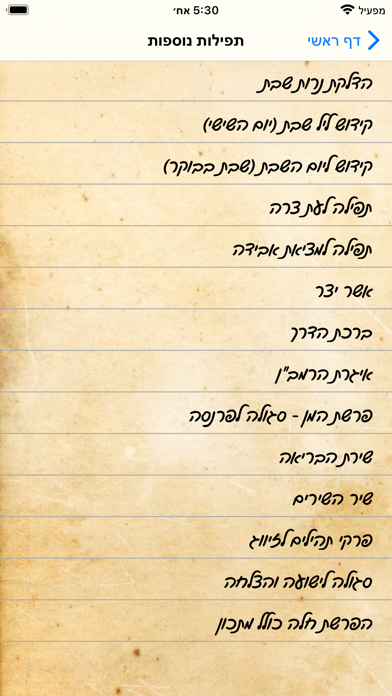 מפעיל 5:30 אח׳
דף ראשי תפילות נוספות
הדלקת נרות שבת
קידוש ליל שבת (יום השישי)
קידוש ליום השבת (שבת בבוקר)
תפילה לעת צרה
תפילה למציאת אבידה
אשר יצר
ברכת הדרך
איגרת הרמב"ן
פרשת המן - סגולה לפרנסה
שירת הבריאה
שיר השירים
פרקי תהילים לזיווג
סגולה לישועה והצלחה
הפרשת חלה כולל מתכון